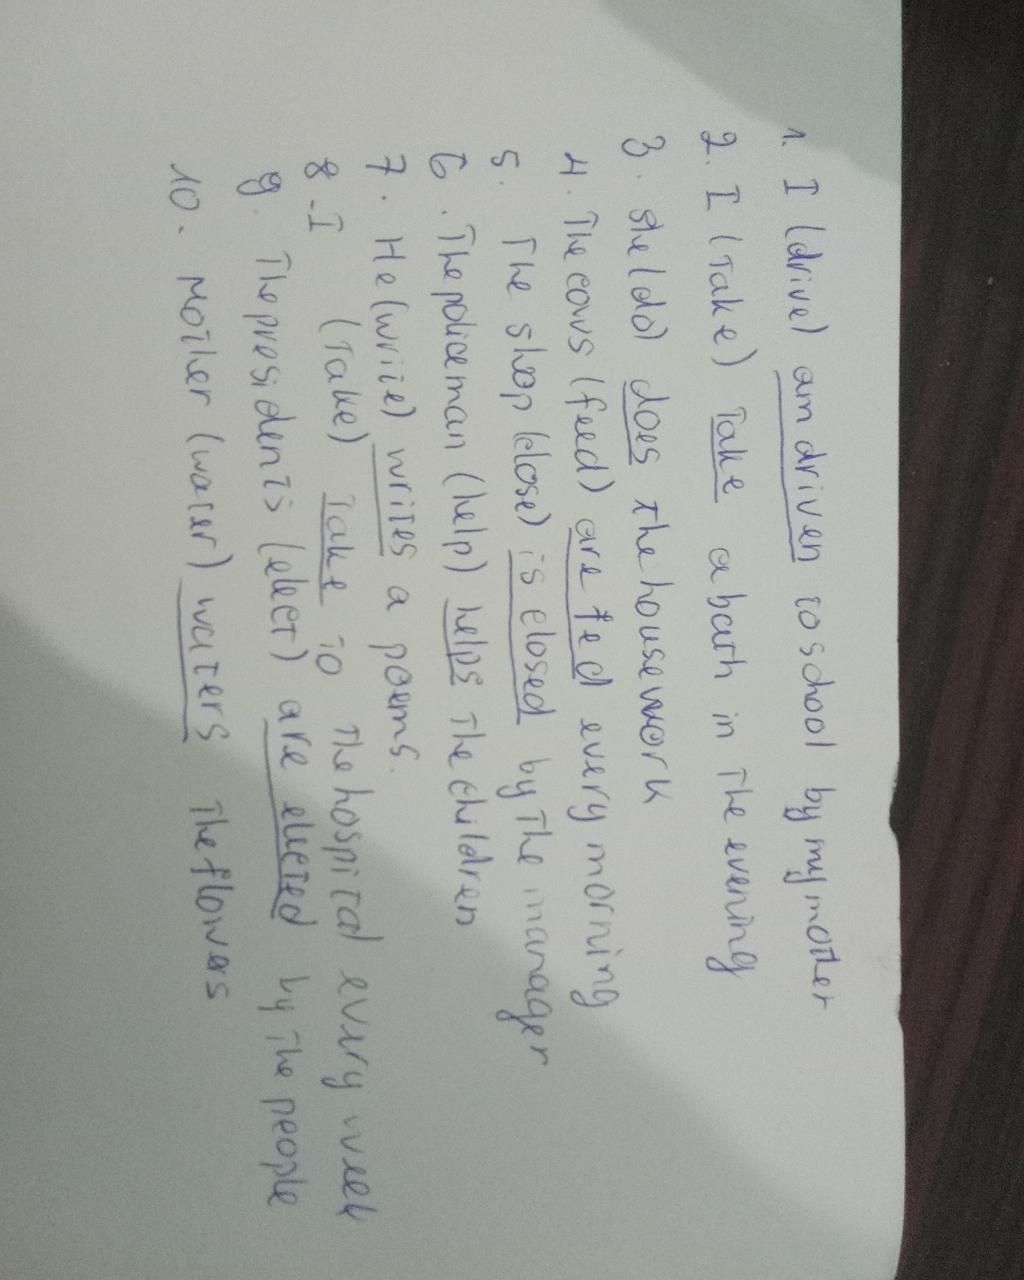 1. I (drive) am driven to school by my mother
2. I (Take) Take a bath in the evening
3. She (do) does the housework
4. The cows (feed) are fed every morning
5. The shop (close) is closed by the manager
6. The policeman (help) helps the children
7. He (write) writes a poems.
8. I (Take) Take to the hospital every week
9. The presidents (elect) are elected by the people
10. Mother (water) waters the flowers